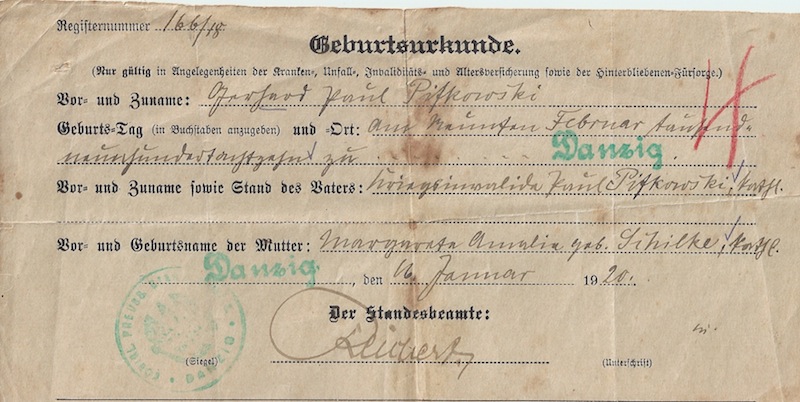 Registernummer 166/18.
Geburtsurkunde.
(Nur gültig in Angelegenheiten der Kranken-, Unfall-, Invaliditäts- und Altersversicherung sowie der Hinterbliebenen-Fürsorge.)
Vor- und Zuname: Gerhard Paul Pifkowski
Geburts-Tag (in Buchstaben anzugeben) und -Ort: Am neunten Februar tausend-
neunhundertachtzehn zu Danzig.
Vor- und Zuname sowie Stand des Vaters: Kriegsinvalide Paul Pifkowski, kathl.
Vor- und Geburtsname der Mutter: Margarete Amalie geb. Schilke, kathl.
Danzig, den 16. Januar 1920.
Der Standesbeamte:
(Siegel) (Unterschrift)
KÖNIGL. PREUSS. DANZIG